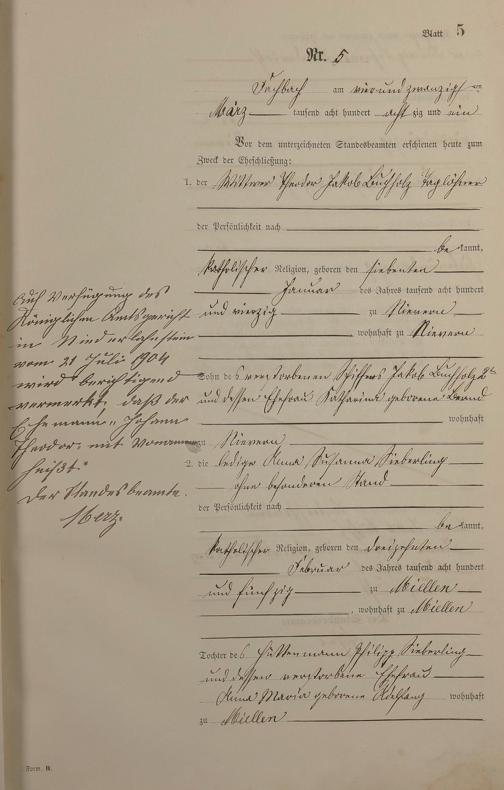 Blatt 5
Nr. 5
Fachbach am vier und zwanzigsten
März tausend acht hundert acht zig und ein
Vor dem unterzeichneten Standesbeamten erschienen heute zum
Zweck der Eheschließung:
1. der Wittwer Theodor Jakob Buchholz Taglöhner
der Persönlichkeit nach
be kannt,
katholischer Religion, geboren den siebenten
Januar des Jahres tausend acht hundert
und vierzig zu Nievern
, wohnhaft zu Nievern
Sohn des verstorbenen Schiffers Jakob Buchholz 2r
und dessen Ehefrau Katharina geborene Brand
wohnhaft
zu Nievern
2. die ledige Anna Susanna Sieberling
ohne besonderen Stand
der Persönlichkeit nach
be kannt,
katholischer Religion, geboren den dreizehnten
Februar des Jahres tausend acht hundert
und fünfzig zu Miellen
, wohnhaft zu Miellen
Tochter des Hüttenmann Philipp Sieberling
und dessen verstorbene Ehefrau
Anna Maria geborene wohnhaft
zu Miellen
Auf Verfügung des
Königlichen Amtsgericht
in Niederlahnstein
vom 21 Juli 1904
wird berichtigend
vermerkt, daß der
Ehemann „Johann
Theodor" mit Vornamen
heißt."
Der Standesbeamte.
Merz.
Form. B.